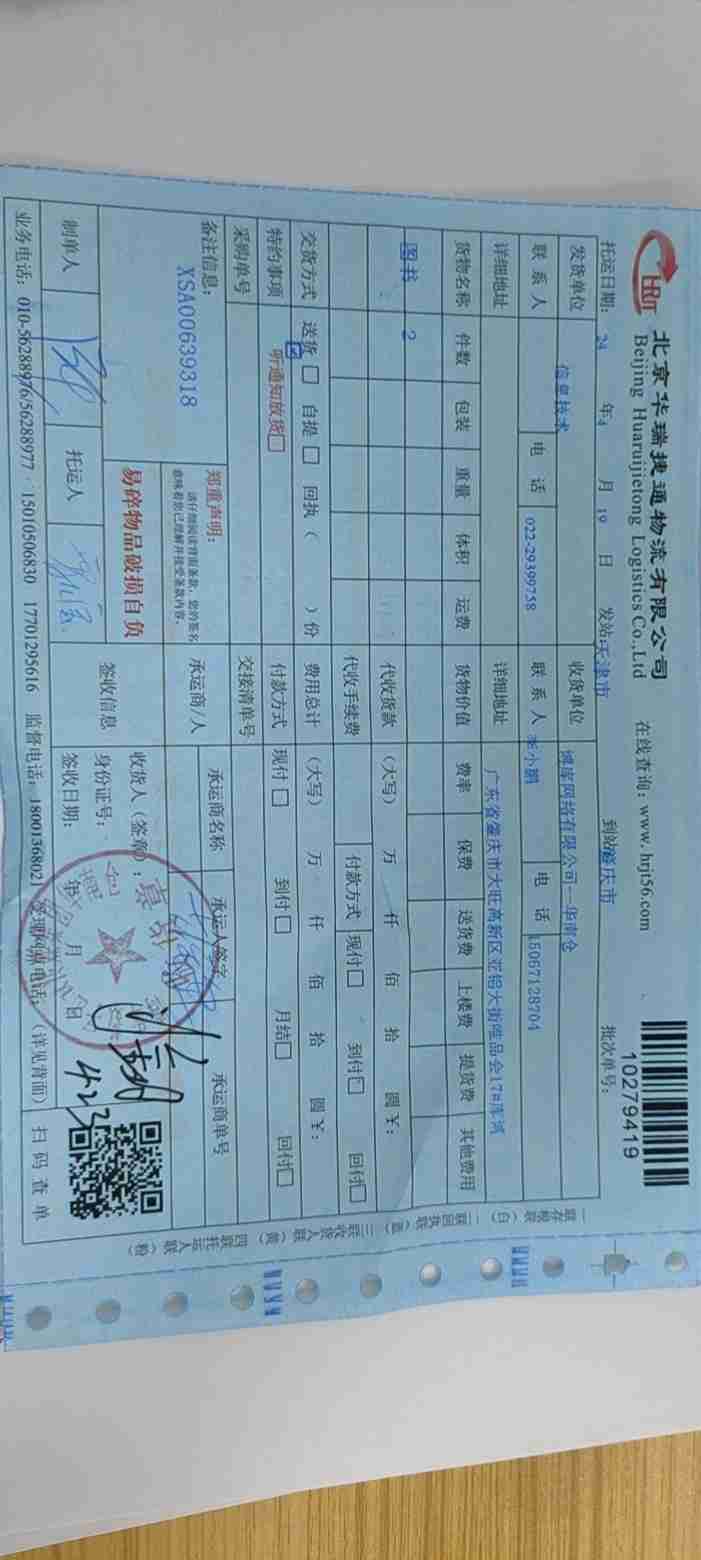 HRJT
北京华瑞捷通物流有限公司
Beijing Huaruijietong Logistics Co.,Ltd
在线查询：www.hrjt56.com
10279419
托运日期：24 年4 月 19 日 发站天津市 到站肇庆市 批次单号：
发货单位 信息技术 收货单位 博库网络有限公司—华南仓
联系人 电话 022-29399758 联系人 李小鹏 电话 15067128704
详细地址 详细地址 广东省肇庆市大旺高新区亚铝大街唯品会17#库房
货物名称 件数 包装 重量 体积 运费 货物价值 费率 保费 送货费 上楼费 提货费 其他费用
图书 2
代收货款 （大写） 万 仟 佰 拾 圆 ¥：
代收手续费 付款方式 现付□ 到付□ 回付□
交货方式 送货☑ □ 自提 □ 回执（ ）份 费用总计 （大写） 万 仟 佰 拾 圆 ¥：
特约事项 听通知放货□ 付款方式 现付□ 到付□ 月结□ 回付□
采购单号 交接清单号
备注信息： XSA00639318
郑重声明：
请仔细阅读背面条款，您的签名
意味着您已理解并接受条款内容。
易碎物品破损自负
承运商/人 承运商名称 承运人签字 承运商单号
签收信息 收货人（签章）：
身份证号：
签收日期： 年 月 日
4.23
制单人 托运人
业务电话：010-56288976/56288977 15010506830 17701295616 监督电话：18001368021 受理网点电话：（详见背面）
扫码查单
一联存根联（白） 二联回执联（蓝） 三联收货人联（黄） 四联托运人联（粉）